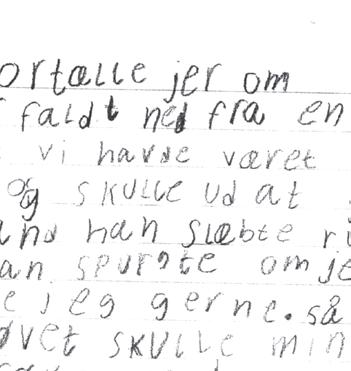 ortælle jer om
faldt ned fra en
vi havde været
og skulle ud at
and han slæbte ri
an spurgte om je
e jeg gerne. så
øvet skulle min